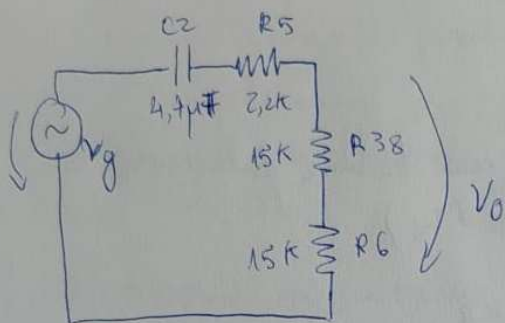 C2 R5
4,7µF 2,2K
Vg
15K R38
V0
15K R6